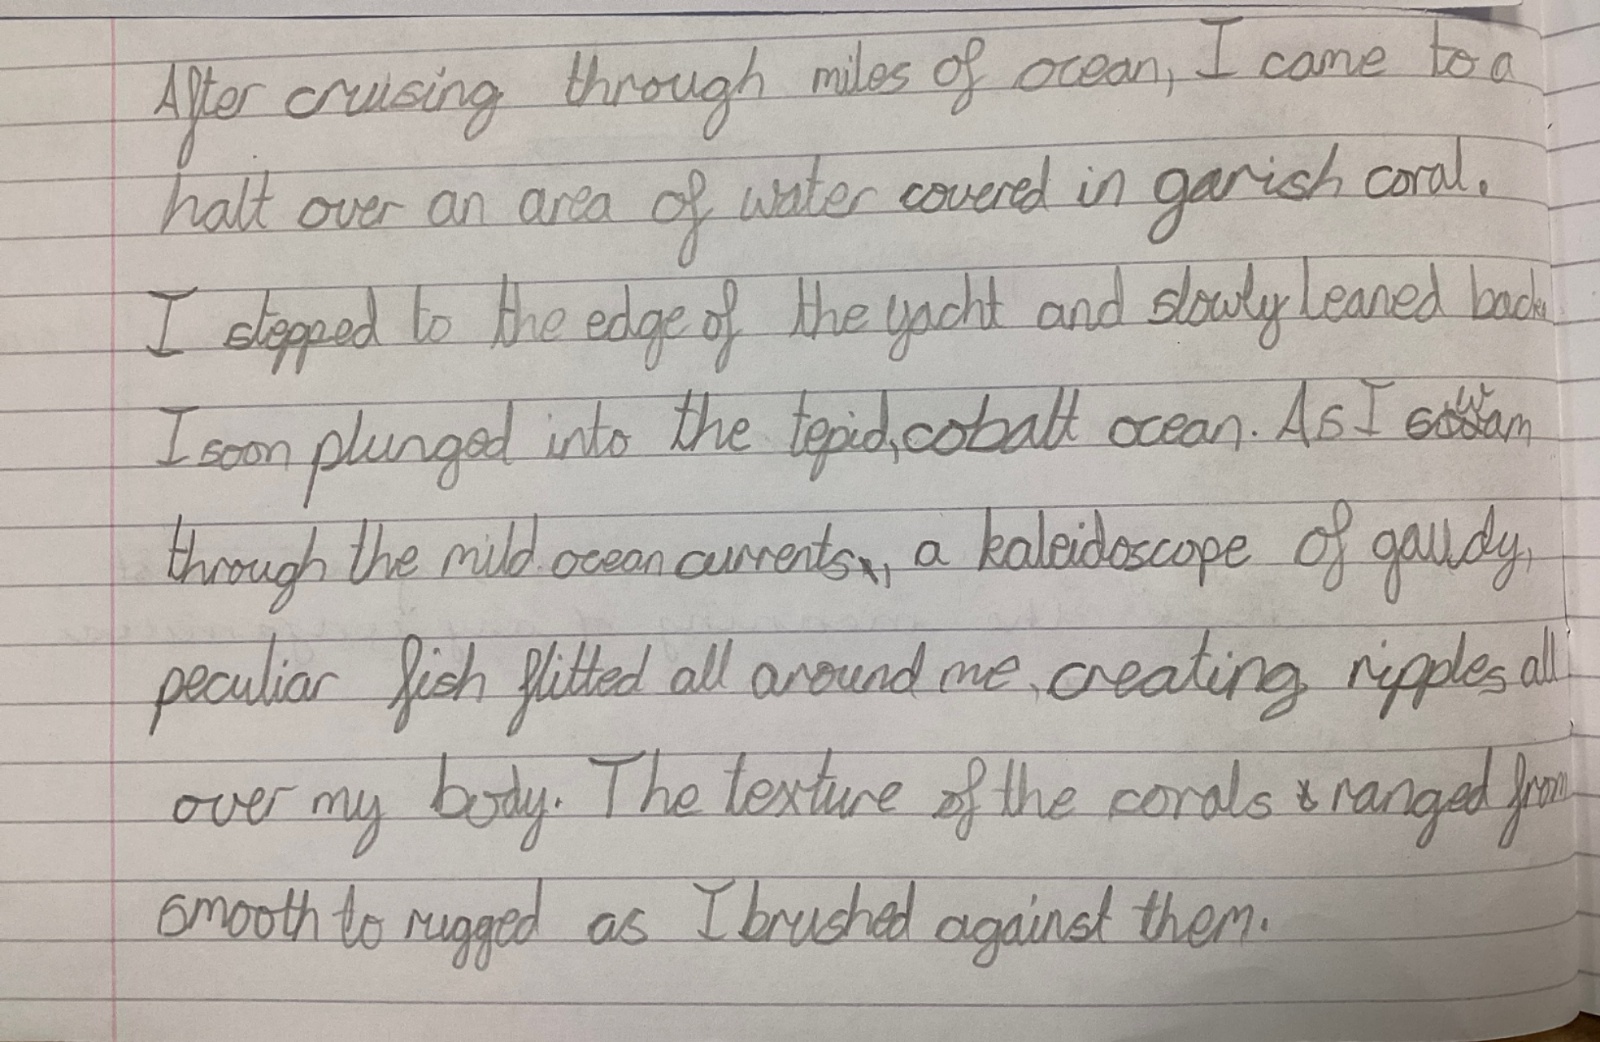 After cruising through miles of ocean, I came to a
halt over an area of water covered in garish coral.
I stepped to the edge of the yacht and slowly leaned back.
I soon plunged into the tepid, cobalt ocean. As I swam
through the mild ocean currents, a kaleidoscope of gaudy,
peculiar fish flitted all around me, creating ripples all
over my body. The texture of the corals ranged from
smooth to rugged as I brushed against them.